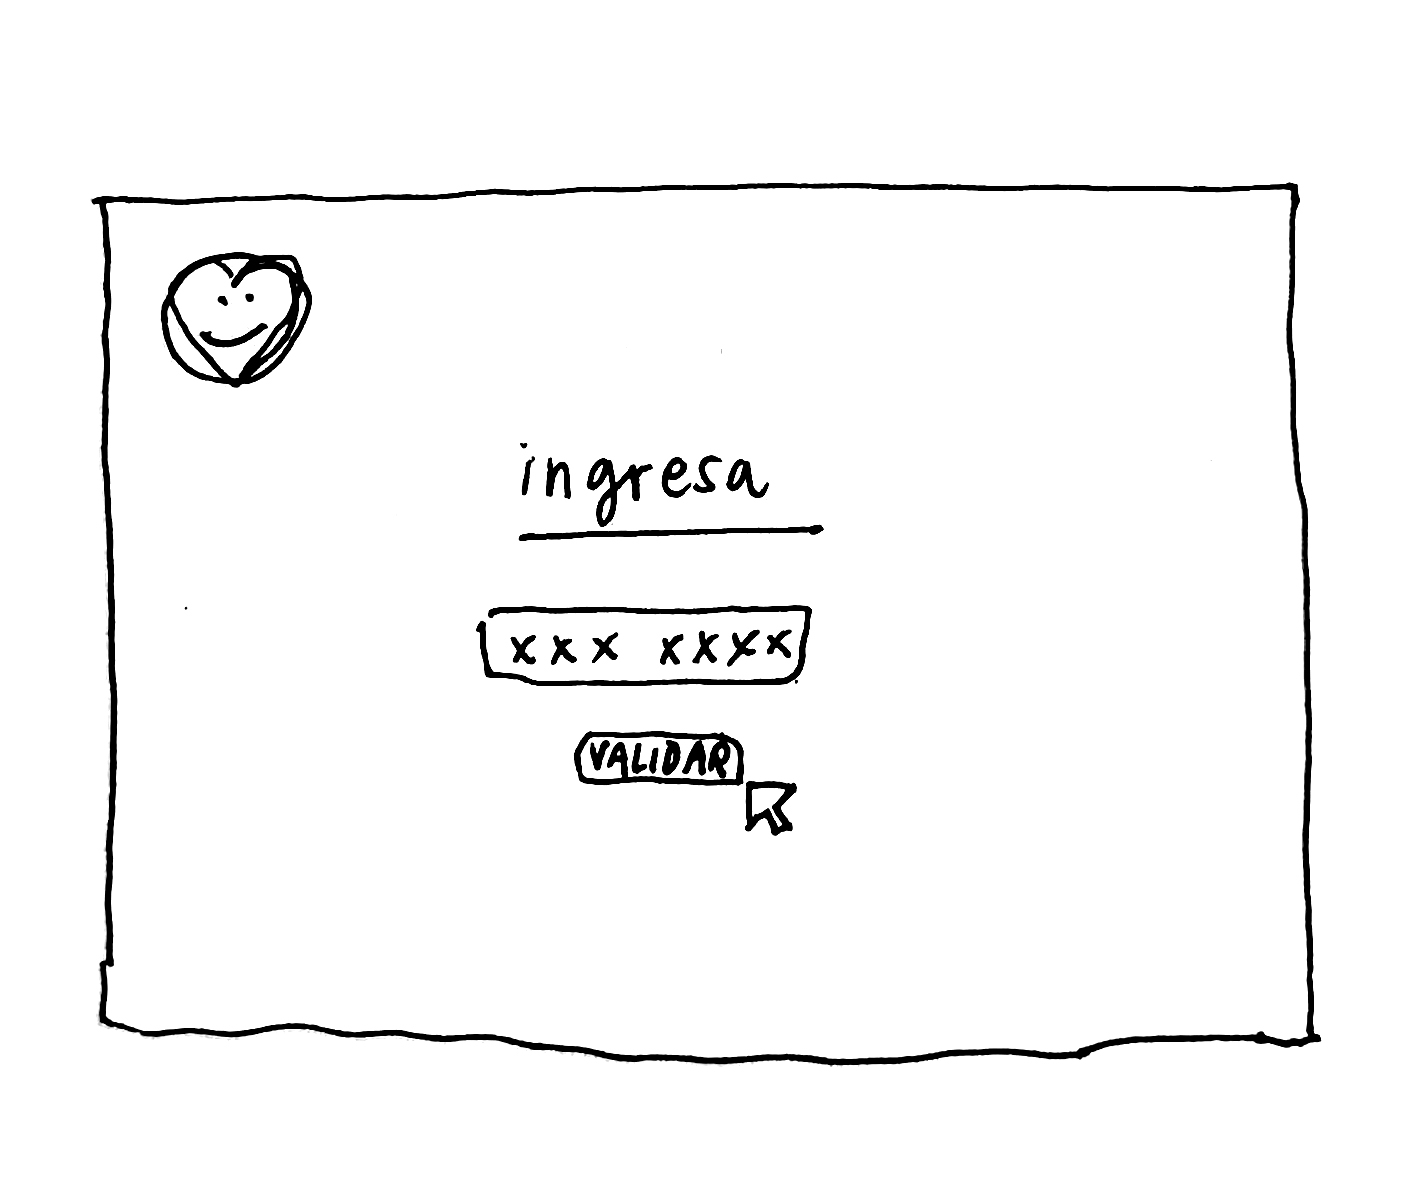 ingresa
xxx xxxx
VALIDAR